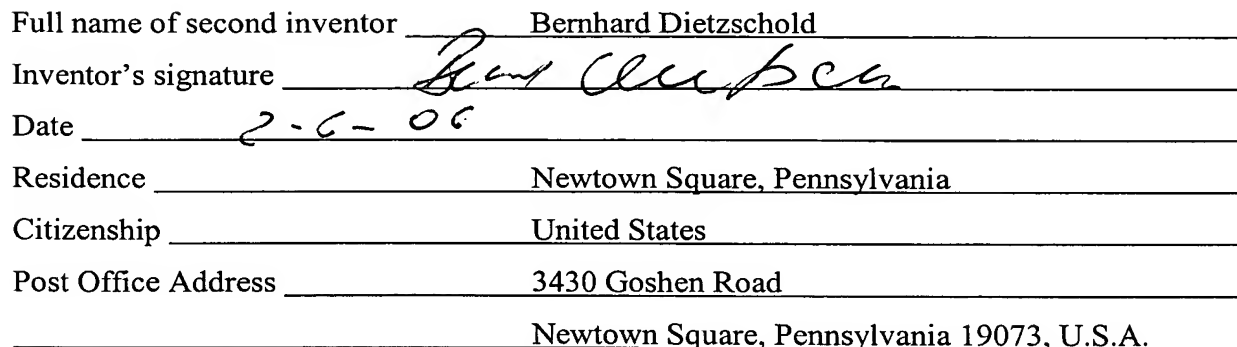 Full name of second inventor Bernhard Dietzschold
Inventor's signature
Date 2-6-06
Residence Newtown Square, Pennsylvania
Citizenship United States
Post Office Address 3430 Goshen Road
Newtown Square, Pennsylvania 19073, U.S.A.